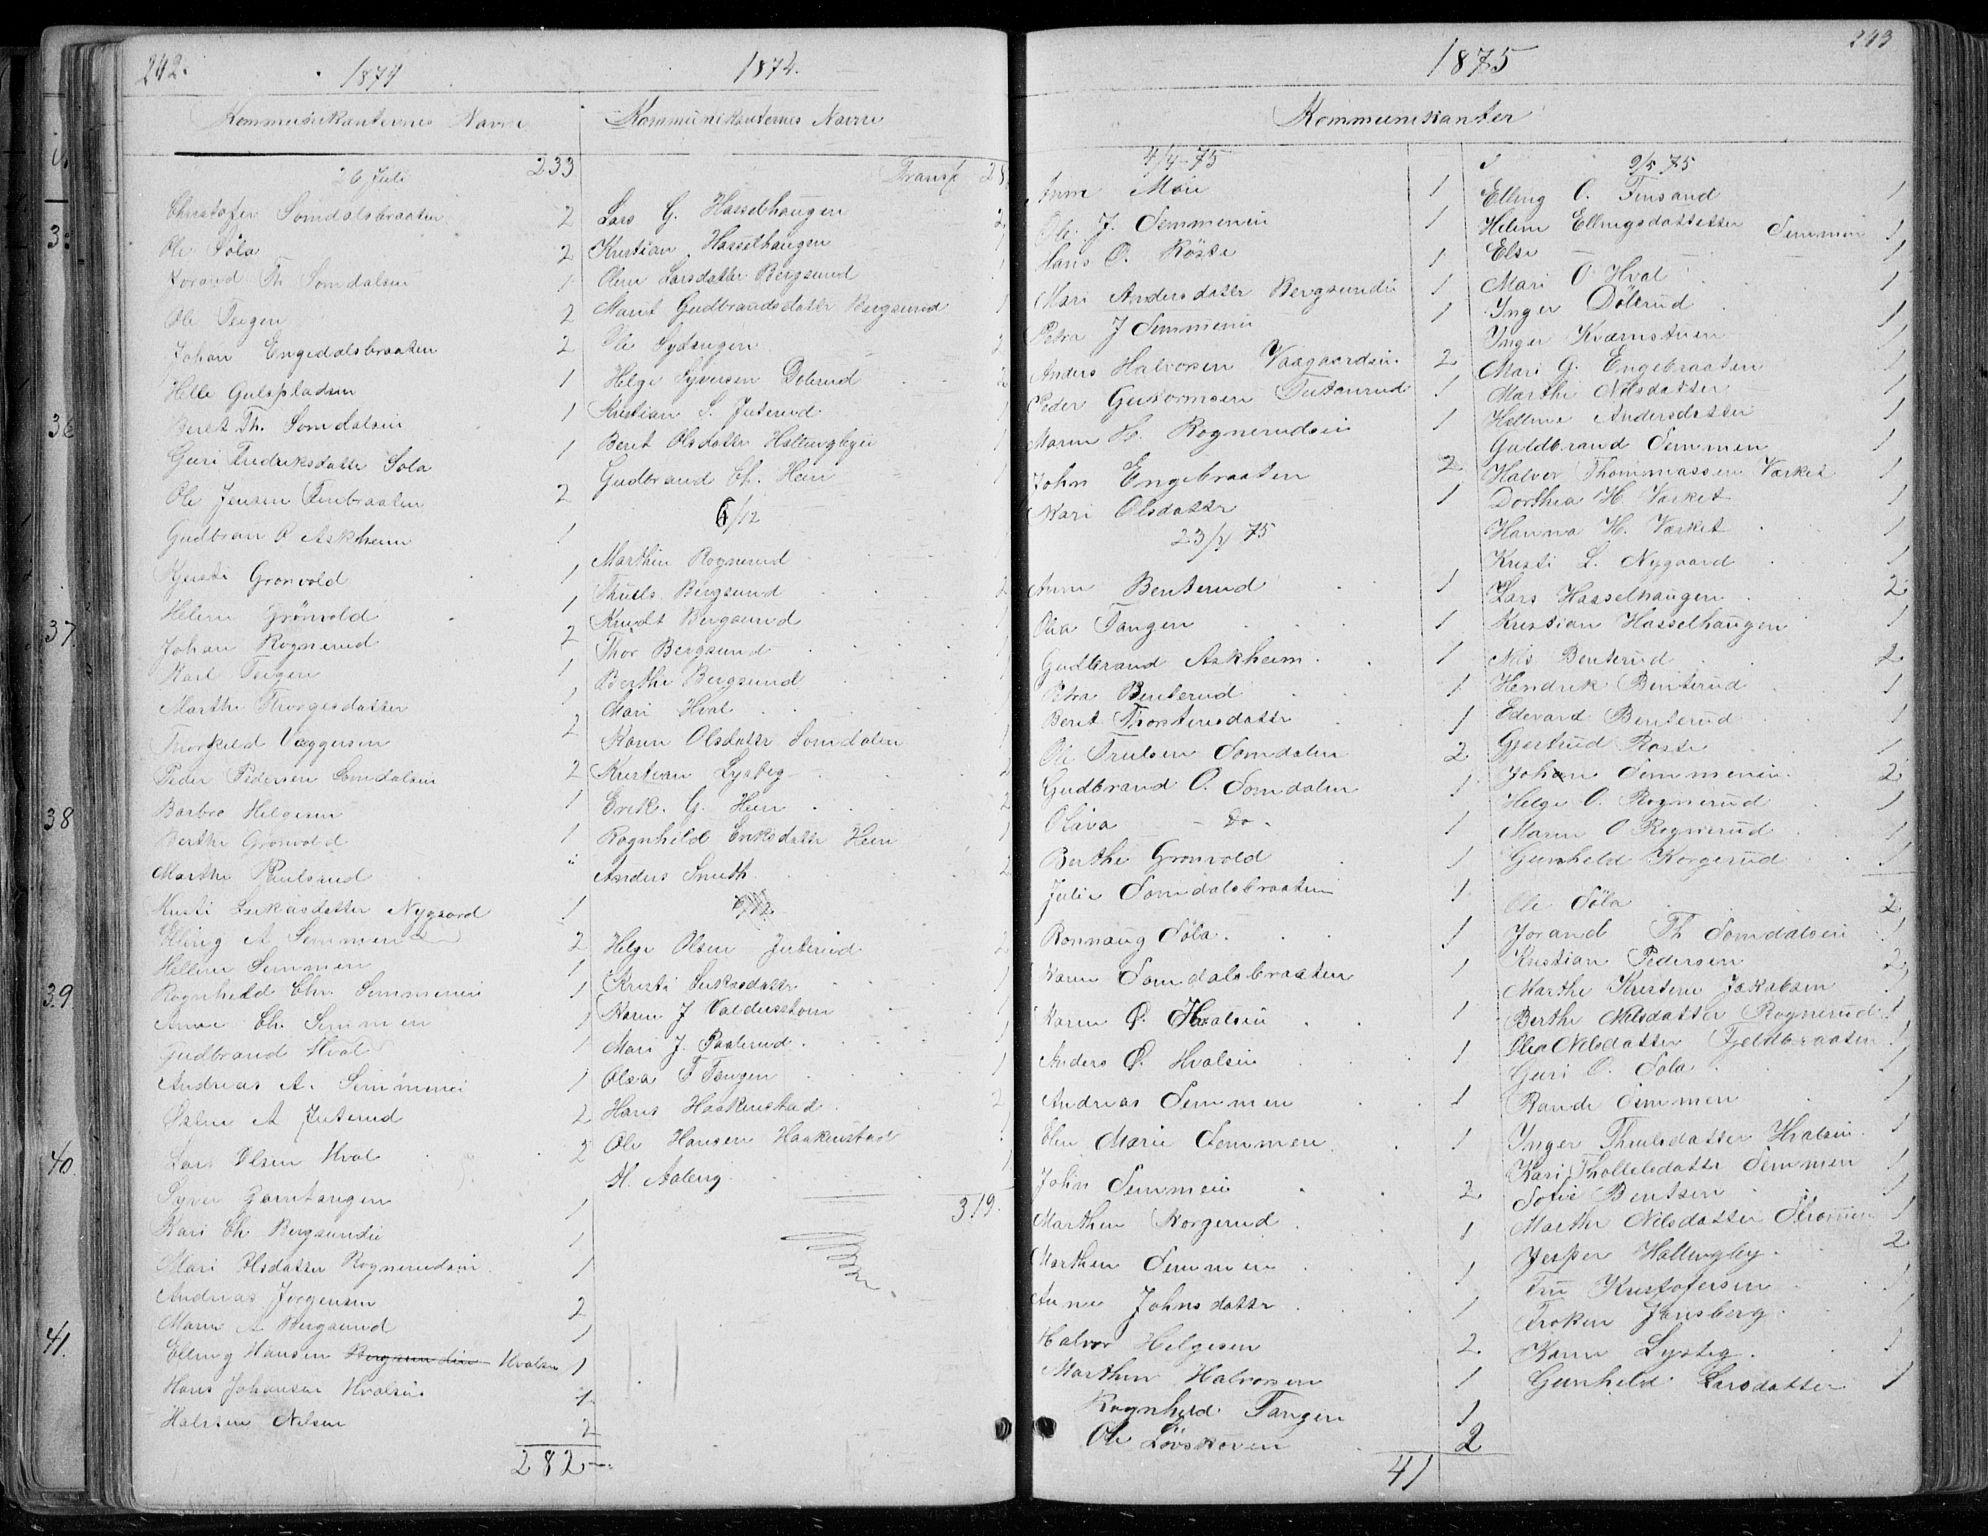 242.
1874
Kommunikanternes Navne
26 Juli 233
Christofer Somdalsbraaten 2
Ole Söla 2
Jorand Th Somdalen 1
Ole Teigen 2
Johan Engedalsbraaten 2
Helle Gulspladsen 1
Beret Th. Somdalseie 1
Guri Fredriksdatter Sola 1
Ole Jensen Finbraaten 2
Gudbran O Askheim 1
Kjersti Grönvold 1
Helene Grönvold 1
Johan Rognerud 2
Karl Teigen 1
Marthe Thorgesdatter 1
Thorkild Væggersen 2
Peder Pedersen Somdalseie 2
Barbro Helgesen 1
Berthe Grönvold 1
Marthe Paulsrud "
Kristi Lukasdatter Nygaard 1
Elling A Semmen 2
Hellene Semmen 1
Rognhild Chr. Semmeneie 1
Anne Ch. Semmen 1
Gudbrand Hval 1
Andreas A. Semmenei 1
Östen A Juterud 2
Lars Olsen Hval 2
Syver Garntangen
Kari Ch. Bergsundeie 1
Mari Olsdatter Rognerudeie 1
Andreas Jörgensen 2
Maren A Bergsund 1
Elling Hansen Bergsundeie Hvalsn 1
Hans Johansen Hvalseie 1
Halsten Nilsen 2
282
1874.
Kommunikanternes Navne
Transp 28
Lars G. Hasselhaugen 2
Kristian Hasselhaugen 1
Olene Larsdatter Bergsund 1
Marit Gudbrandsdatter Bergsund 1
Ole Sydengen 2
Helge Syversen Dölerud 2
Kristian S. Juterud 1
Beret Olsdatter Hallingbyeie 1
Gudbrand Ch. Hein 1
6/12
Marthin Rognerud
Thruls Bergsund 2
Knudt Bergsund 1
Thor Bergsund 1
Berthe Bergsund 1
Mari Hval 1
Karen Olsdatter Somdalen 1
Kristian Lysbeg 2
Erik. G. Hein 2
Rognhild Eriksdatter Hein 1
Anders Smeth 2
6/12
Helge Olsen Juterud 2
Kristi Lukasdatter 1
Karen J Valdersstoen 1
Mari J. Paalerud 1
Olea F Tangen 1
Hans Haakenstad 2
Ole Hansen Haakenstad 1
H. Aaberg 1
319.
243
1875
Kommunikanter
4/4-75
Anne Moe 1
Ole J. Semmeneie 1
Hans O. Röste 1
Mari Andersdatter Bergsundeie 1
Petra J Semmeneie 1
Anders Halvorsen Vaagaardseie 2
Peder Guttormsen Sutenrud 1
Maren H. Rognerudseie 1
John Engebraaten 2
Kari Olsdatter 1
23/4 75
Anne Benterud 1
Olea Tangen 1
Gudbrand Askheim. 1
Petra Benterud 1
Beret Thorstensdatter 1
Ole Trulsen Somdalen 2
Gudbrand O. Somdalen 1
Olava - do - 1
Berthe Grönvold 1
Julie Somdalsbraaten 1
Ronnaug Söla. 1
Karen Somdalsbraaten 1
Karen O. Hvalseie 1
Anders O. Hvalseie 1
Andreas Semmen 1
Elen Marie Semmen 1
John Semmeneie 2
Marthen Korgerud 1
Marthen Semmen 1
Anne Johnsdatter 1
Halvor Helgesen 2
Marthin Halvorsen 1
Rognhild Tangen 1
Ole Lövskoven 2
41
9/5 75
Elling O. Finsand 1
Helene Ellingsdatter Semmen 1
Else 1
Mari O Hval 1
Inger Dölerud 1
Inger Kværnstuen 1
Mari G. Engebraaten 1
Marthe Nilsdatter 1
Hellene Andersdatter 1
Guldbrand Semmen 1
Halvor Thommassen Værket 1
Dorthea H Værket 1
Hanna H. Værket 1
Kristi L. Nygaard 1
Lars Hasselhaugen 2
Kristian Hasselhaugen 1
Nils Benterud 2
Hendrik Benterud 1
Edevard Benterud
Gjertrud Röste 1
Johan Semmeneie. 2
Helge O. Rognerud 1
Maren O Rognerud 1
Gunhild Korgerud 1
Ole Söla 2
Jorand Th Somdalseie 1
Kristian Pedersen 2
Marthe Kristine Jakobsen 1
Berthe Nilsdatter Rognerud 1
Olea Nilsdatter Fjeldbraaten 1
Guri O. Sola 1
Rande Semmen 1
Inger Thrulsdatter Hvalseie 1
Kari Thollelsdatter Semmen 1
Sofie Bentsen 1
Marthe Nilsdatter Strömmen 1
Jesper Hallingby. 2
Fru Kristofersen 1
Froken Jansberg. 1
Karen Lysbeg. 1
Gunhild Larsdatter 1
36
37
38
39
40
41.